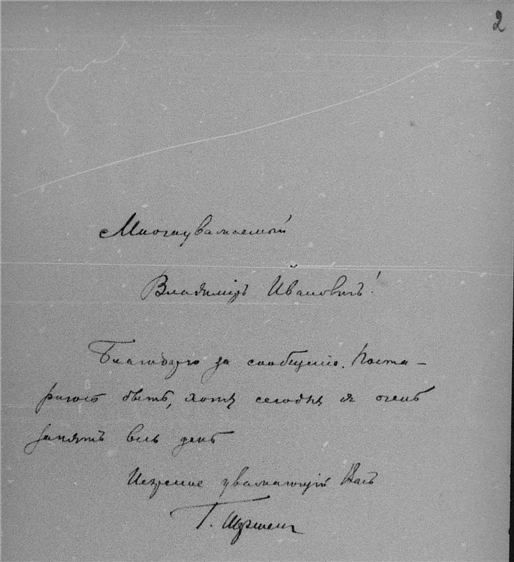 2
Многоуважаемый
Владиміръ Ивановичъ!
Благодарю за сообщеніе. Поста-
раюсь быть, хотя сегодня я очень
занятъ весь день
Искренно уважающій Васъ
Г.